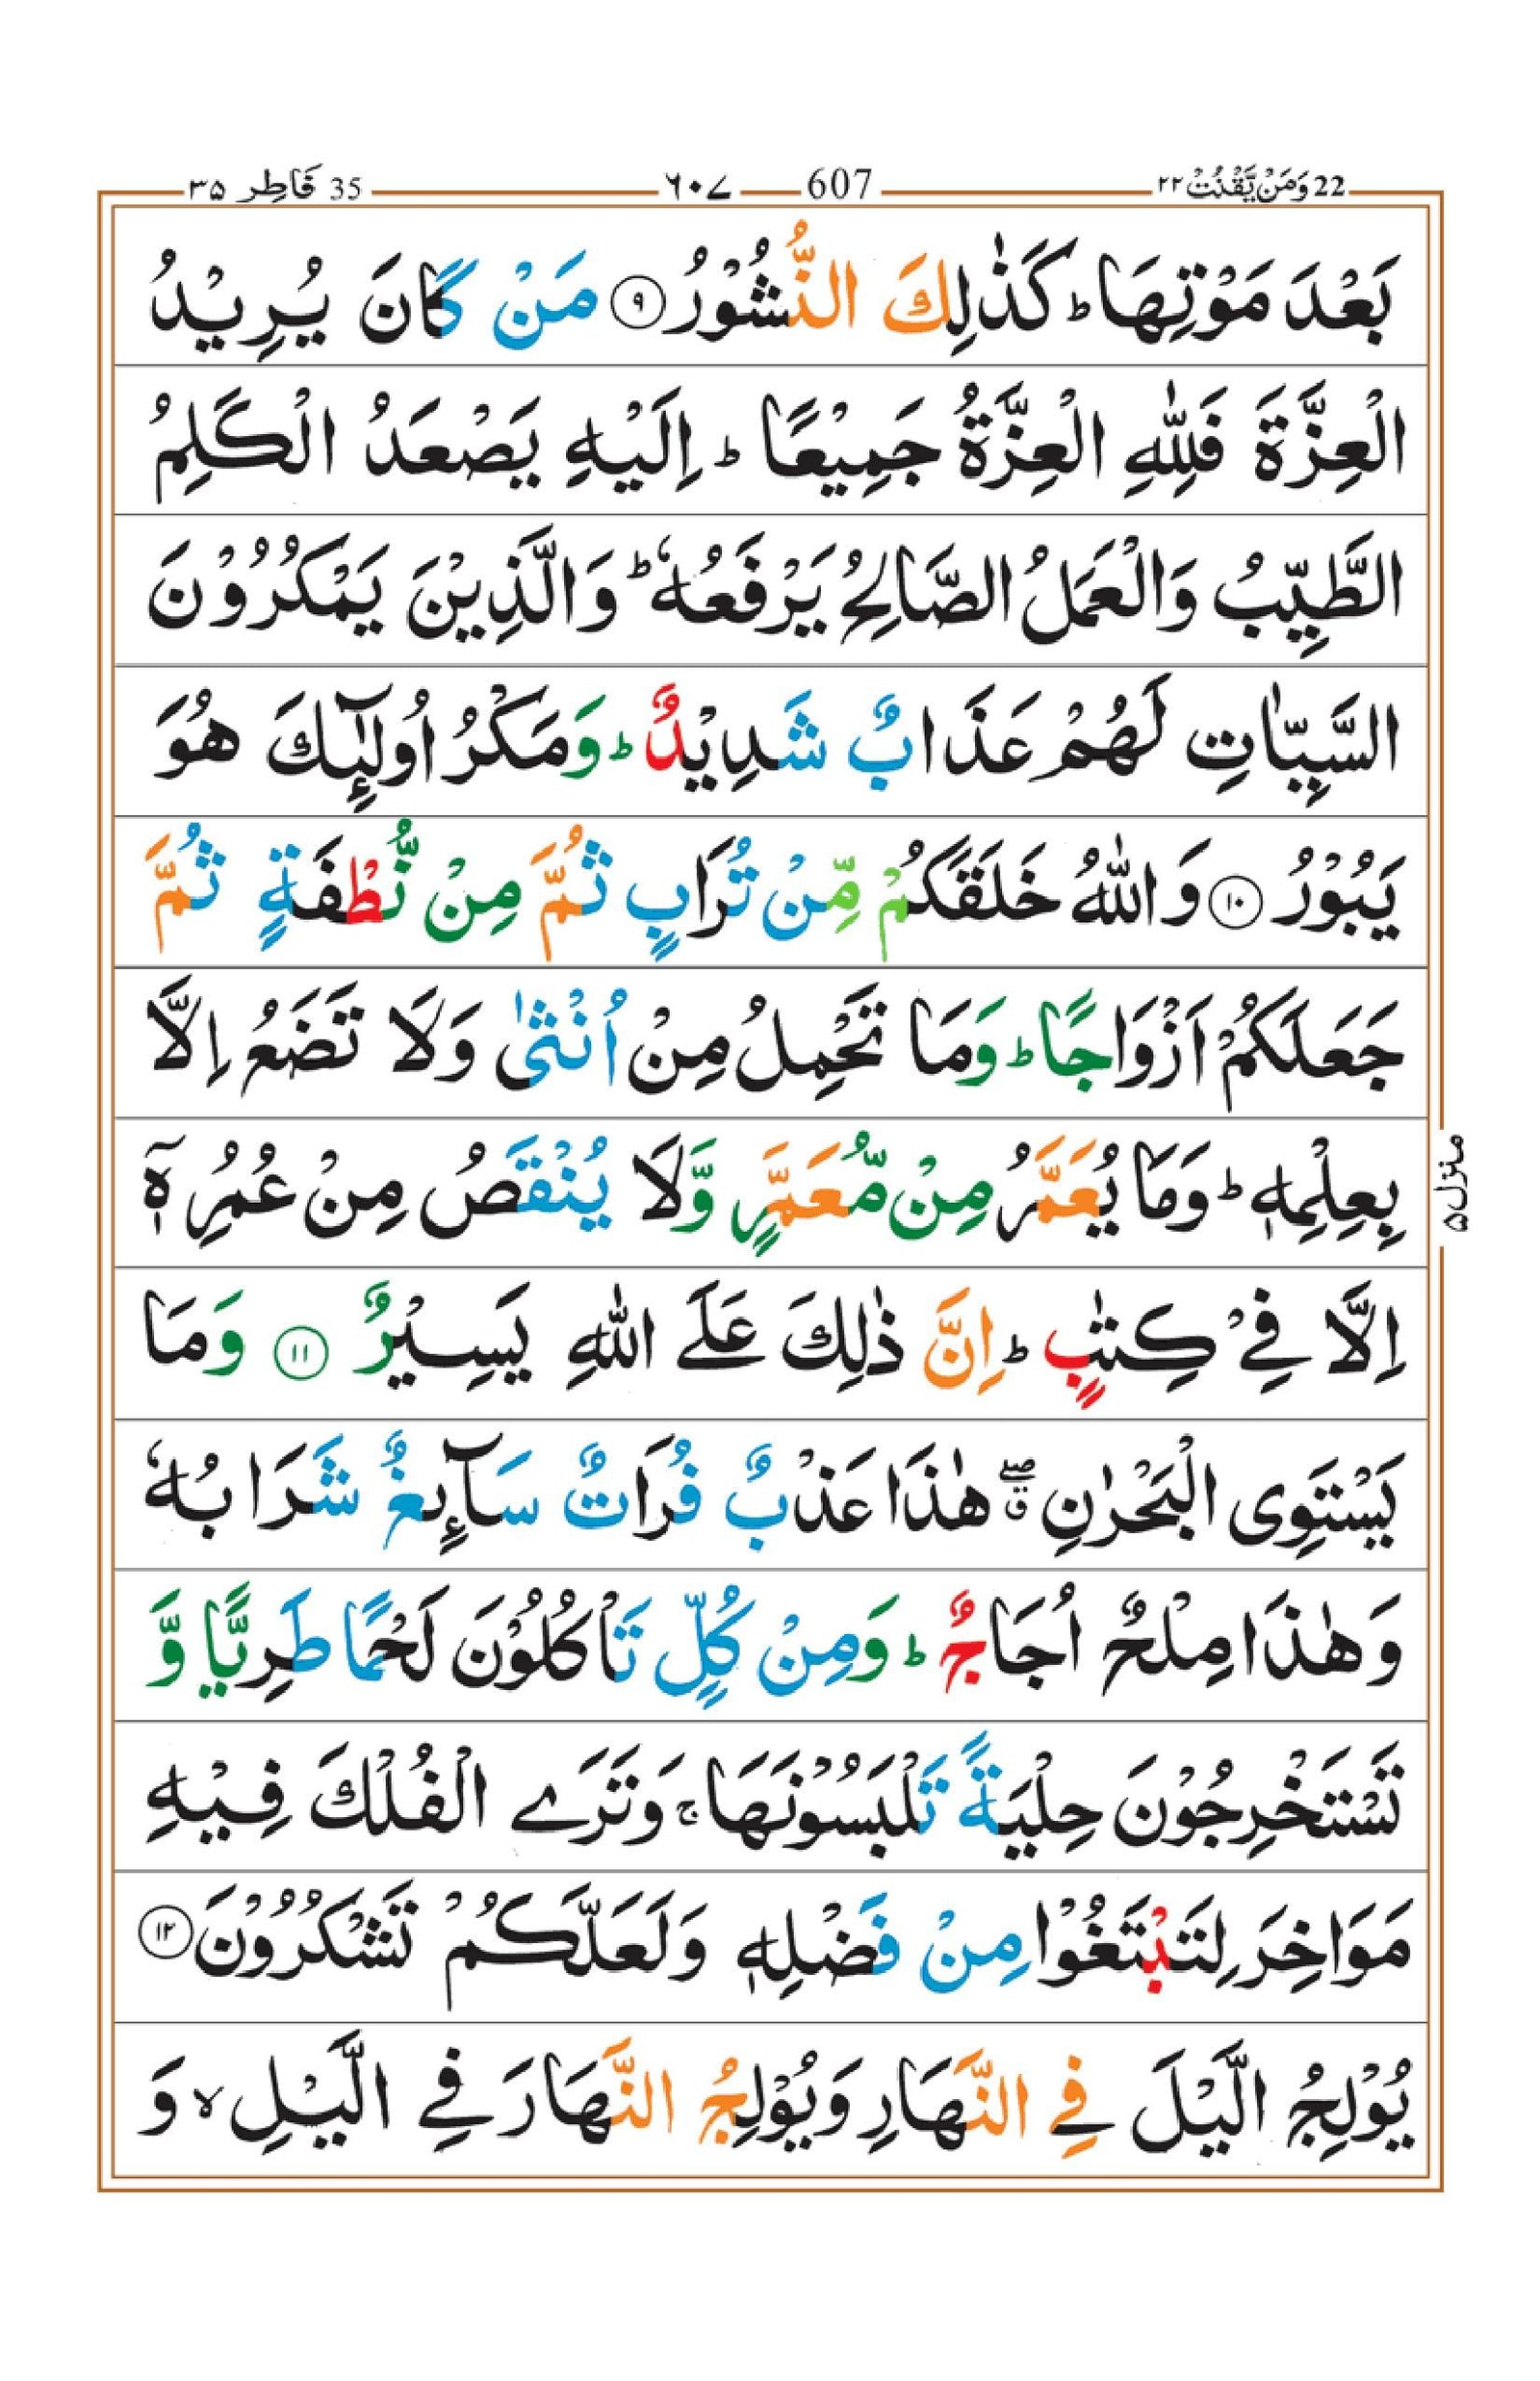 22 وَمَنْ يَّقْنُتْ ۲۲ 607 ٦٠٧ 35 فَاطِر ۳۵
بَعْدَ مَوْتِهَا ؕ كَذٰلِكَ النُّشُوْرُ ۹ مَنْ كَانَ يُرِيْدُ
الْعِزَّةَ فَلِلّٰهِ الْعِزَّةُ جَمِيْعًا ؕ اِلَيْهِ يَصْعَدُ الْكَلِمُ
الطَّيِّبُ وَالْعَمَلُ الصَّالِحُ يَرْفَعُهٗ ؕ وَالَّذِيْنَ يَمْكُرُوْنَ
السَّيِّاٰتِ لَهُمْ عَذَابٌ شَدِيْدٌ ؕ وَمَكْرُ اُولٰٓئِكَ هُوَ
يَبُوْرُ ۱۰ وَاللّٰهُ خَلَقَكُمْ مِّنْ تُرَابٍ ثُمَّ مِنْ نُّطْفَةٍ ثُمَّ
جَعَلَكُمْ اَزْوَاجًا ؕ وَمَا تَحْمِلُ مِنْ اُنْثٰى وَلَا تَضَعُ اِلَّا
بِعِلْمِهٖ ؕ وَمَا يُعَمَّرُ مِنْ مُّعَمَّرٍ وَّلَا يُنْقَصُ مِنْ عُمُرِهٖٓ
اِلَّا فِيْ كِتٰبٍ ؕ اِنَّ ذٰلِكَ عَلَے اللّٰهِ يَسِيْرٌ ۱۱ وَمَا
يَسْتَوِى الْبَحْرٰنِ ۖۗ هٰذَا عَذْبٌ فُرَاتٌ سَآئِغٌ شَرَابُهٗ
وَهٰذَا مِلْحٌ اُجَاجٌ ؕ وَمِنْ كُلٍّ تَاْكُلُوْنَ لَحْمًا طَرِيًّا وَّ
تَسْتَخْرِجُوْنَ حِلْيَةً تَلْبَسُوْنَهَا ۚ وَتَرَے الْفُلْكَ فِيْهِ
مَوَاخِرَ لِتَبْتَغُوْا مِنْ فَضْلِهٖ وَلَعَلَّكُمْ تَشْكُرُوْنَ ۱۲
يُوْلِجُ الَّيْلَ فِے النَّهَارِ وَيُوْلِجُ النَّهَارَ فِے الَّيْلِ ۙ وَ
منزل ۵